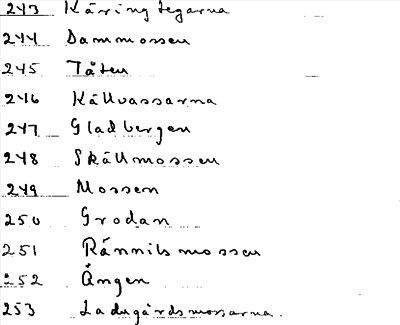 243 Käringtegarna
244 Dammossen
245 Tåten
246 Källvassarna
247 Gladbergen
248 Skällmossen
249 Mossen
250 Grodan
251 Rännilsmossen
252 Ängen
253 Ladugårdsmossarna.